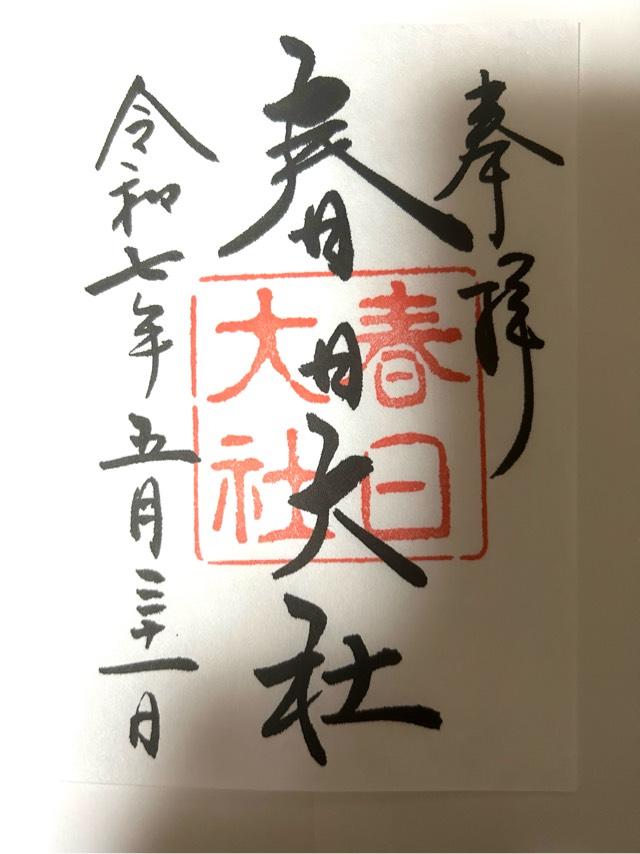 奉拝
春日大社
春日
大社
令和七年五月三十一日